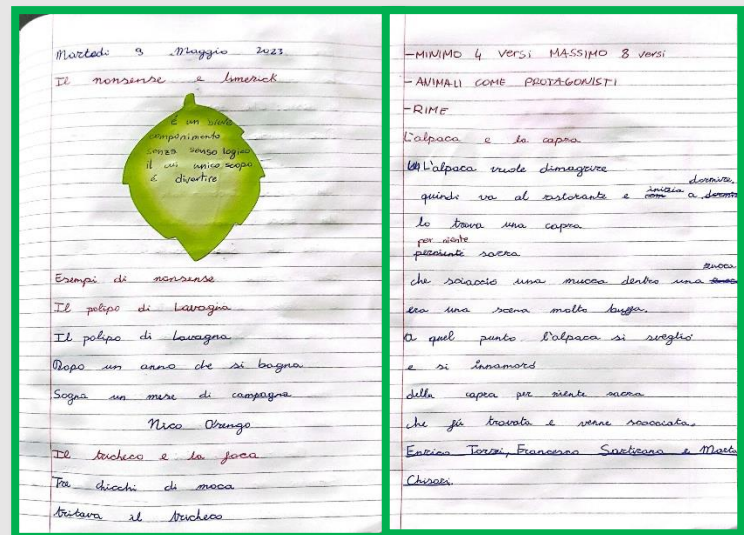 Martedì 9 Maggio 2023
Il nonsense e limerick
É un breve
componimento
senza senso logico
il cui unico scopo
é divertire
Esempi di nonsense
Il polipo di Lavagna
Il polipo di Lavagna
Dopo un anno che si bagna
Sogna un mese di campagna
Nico Orengo
Il tricheco e la foca
Tre chicchi di moca
tritava il tricheco
-MINIMO 4 versi MASSIMO 8 versi
-ANIMALI COME PROTAGONISTI
-RIME
L'alpaca e la capra
L'alpaca vuole dimagrire
dormire.
quindi va al ristorante e inizia a
lo trova una capra
per niente
perniente sacra
zucca
che sciacciò una mucca dentro una
era una scena molto buffa.
a quel punto l'alpaca si svegliò
e si innamorò
della capra per niente sacra
che già trovata e venne scacciata.
Enrico Torri, Francesco e Marta